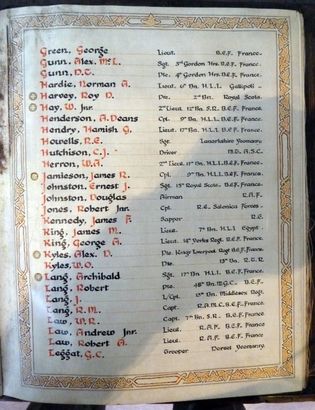 Green, George Lieut. B.E.F. France.
Gunn, Alex. McL. Sgt. 5th Gordon Hrs. B.E.F. France.
Gunn, D.T. Pte. 4th Gordon Hrs. B.E.F. France.
Hardie, Norman A. Lieut. 6th Bn. H.L.I. Gallipoli.
Harvey, Roy D. Pte. 2nd Bn. Royal Scots.
Hay, W. Jnr. 2nd Lieut. 12th Bn. S.R. B.E.F. France.
Henderson, A. Deans Cpl. 9th Bn. H.L.I. B.E.F. France.
Hendry, Hamish G. Lieut. 17th Bn. H.L.I. B.E.F. France.
Howells, R.E. Sgt. Lanarkshire Yeomanry.
Hutchison, C.J. Driver M.D. A.S.C.
Herron, W.A. 2nd Lieut. 11th Bn. H.L.I. B.E.F. France.
Jamieson, James R. Cpl. 9th Bn. H.L.I. B.E.F. France.
Johnston, Ernest J. Sgt. 15th Royal Scots. B.E.F. France.
Johnston, Douglas Airman R.A.F.
Jones, Robert Jnr. Cpl. R.E. Salonica Forces.
Kennedy, James F. Sapper R.E.
King, James M. Lieut. 7th Bn. H.L.I. Egypt.
King, George A. Lieut. Yorks Regt. B.E.F. France.
Kyles, Alex. D. Pte. Kings Liverpool Regt. B.E.F. France.
Kyles, W.O. Pte. Bn. R.G.R.
Lang, Archibald Sgt. 17th H.L.I. B.E.F. France.
Lang, Robert Pte. 48th Bn. M.G.C. B.E.F.
Lang, J. L/Cpl. 13th Bn. Middlesex Regt.
Lang, R.M. Capt. R.A.M.C. B.E.F. France.
Law, W.R. Capt. 7th Bn. S.R. B.E.F. France.
Law, Andrew Jnr. Lieut. R.A.F. B.E.F. France.
Law, Robert A. Lieut. R.A.F. B.E.F. France.
Leggat, G.C. Trooper Dorset Yeomanry.